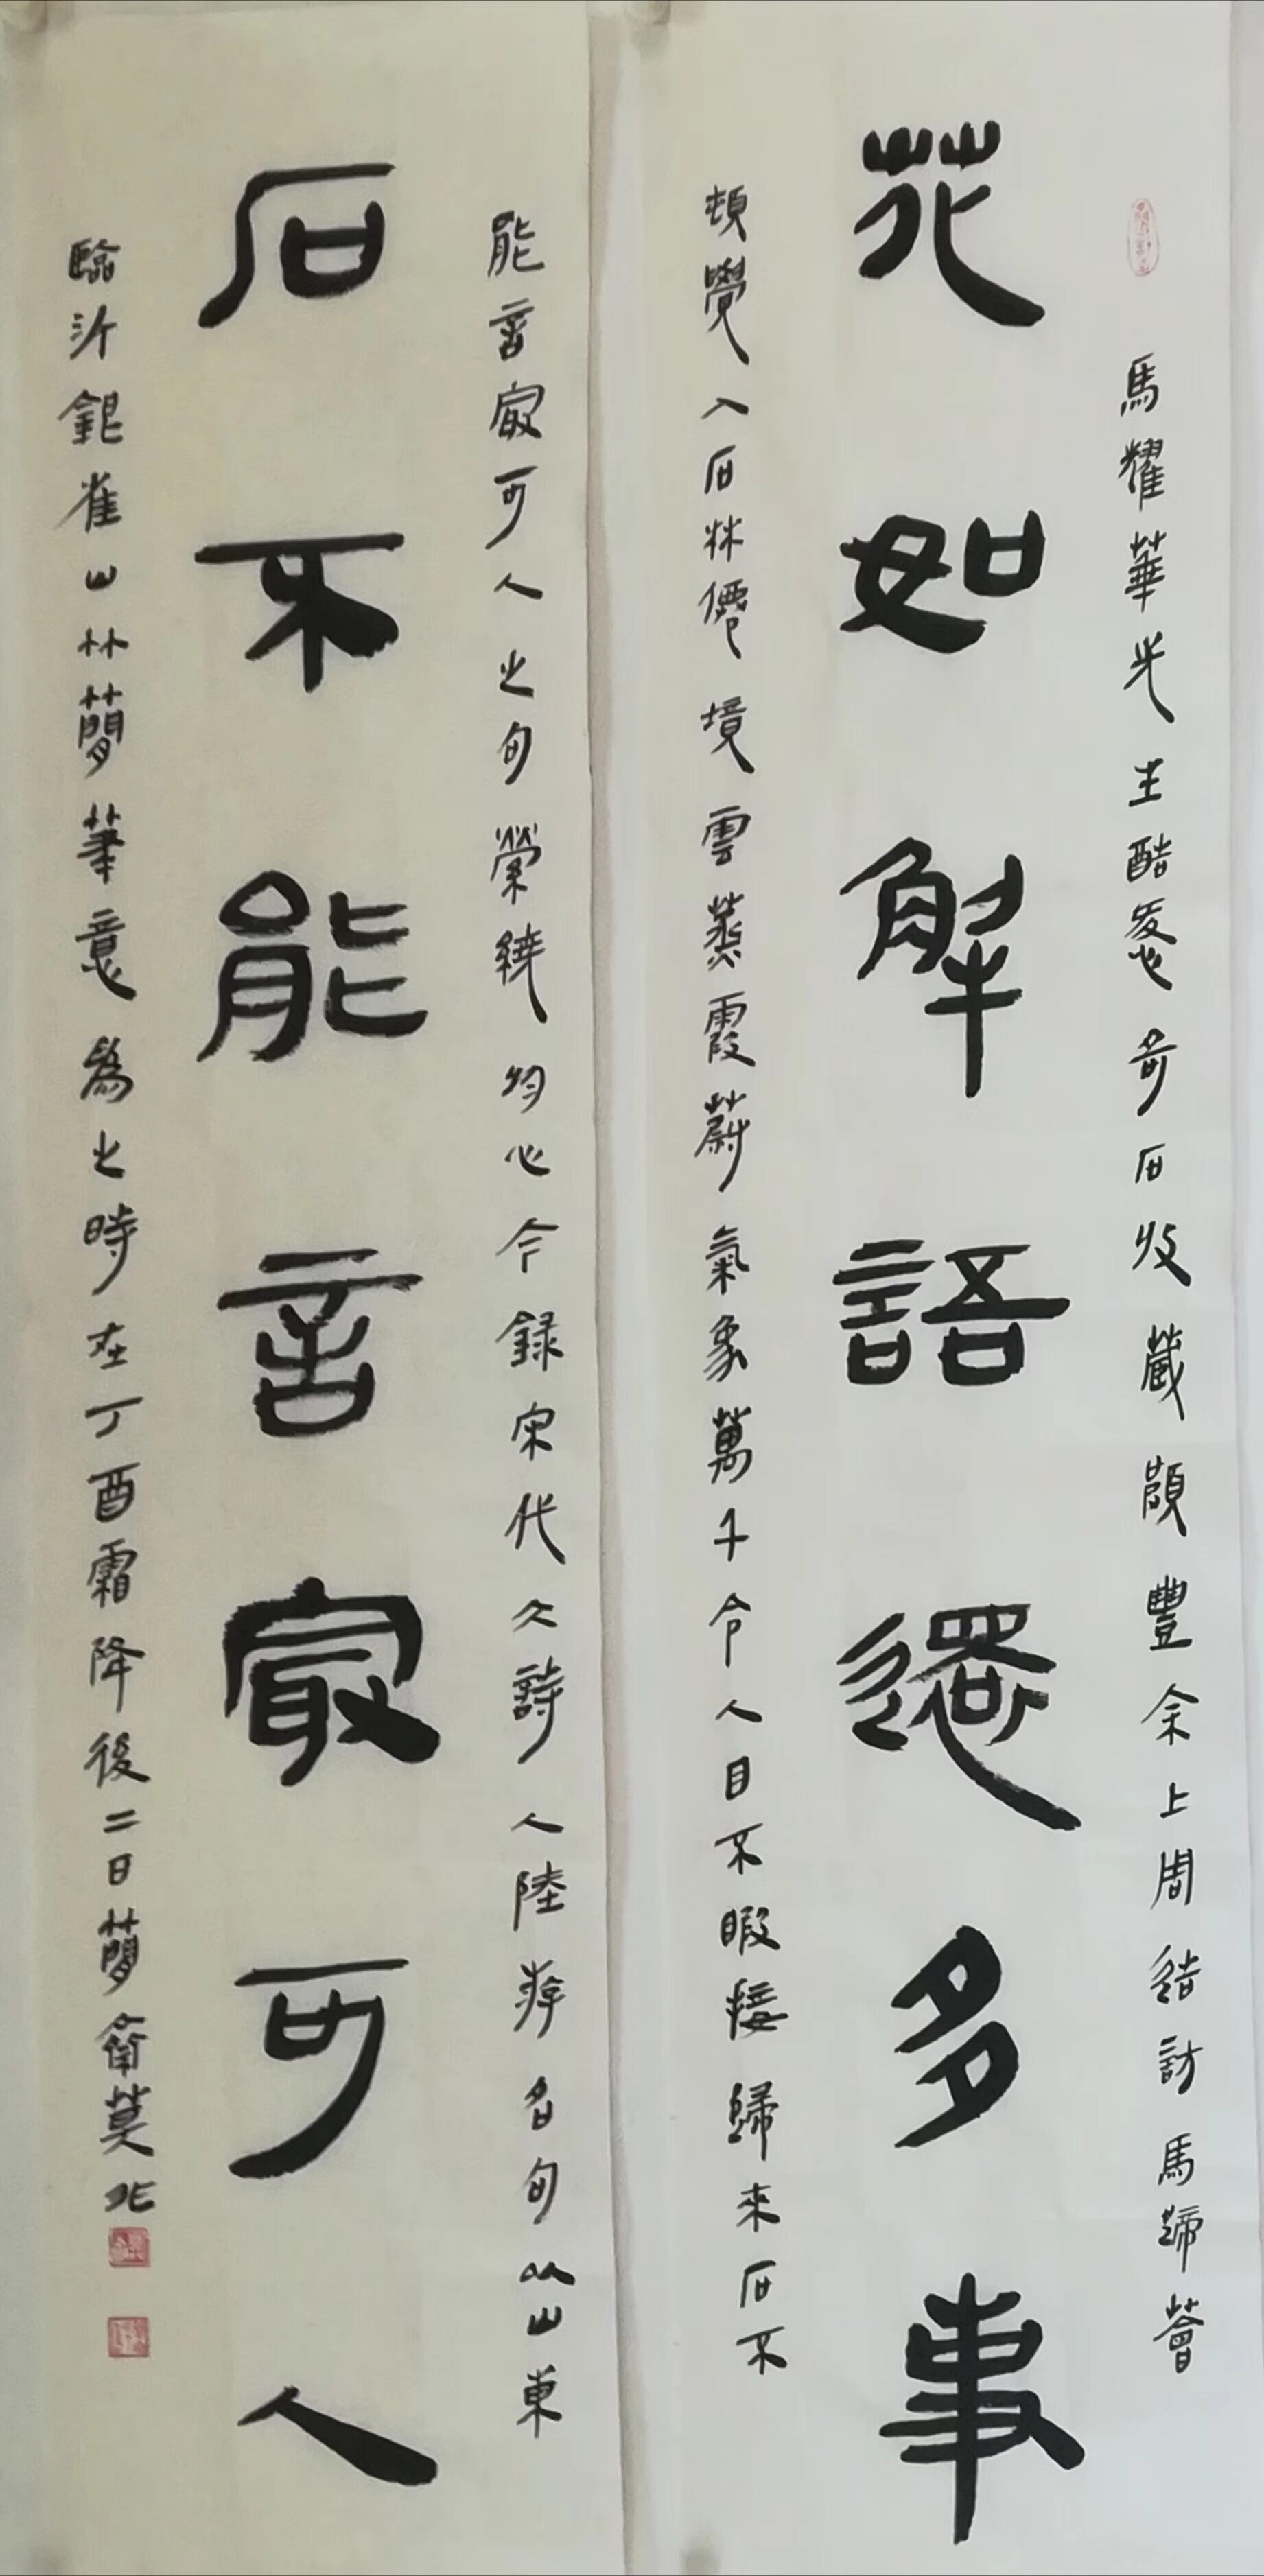 馬耀華先生酷愛奇石收藏頗豐余上周結訪馬蹄薈
花如解語還多事
頓覺入石林僊境雲蒸霞蔚氣象萬千令人目不暇接歸來石不
能言最可人之句縈繞於心今錄宋代大詩人陸游名句以山東
石不能言最可人
臨沂銀雀山竹簡筆意為之時在丁酉霜降後二日簡齋莫北